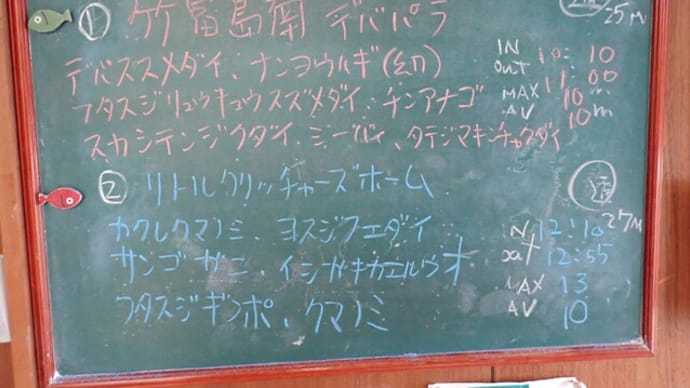 ① 竹富島南 デバパラ
25M
デバスズメダイ、ナンヨウハギ(幼)
IN 10:10
out 11:00
フタスジリュウキュウスズメダイ、チンアナゴ
MAX 10m
AV 10m
スカシテンジクダイ、ミーバイ、タテジマキンチャクダイ
② リトルクリッチャーズホーム
透 27M
カクレクマノミ、ヨスジフエダイ
IN 12:10
サンゴガニ、イシガキカエルウオ
out 12:55
MAX 13
フタスジギンポ、クマノミ
AV 10